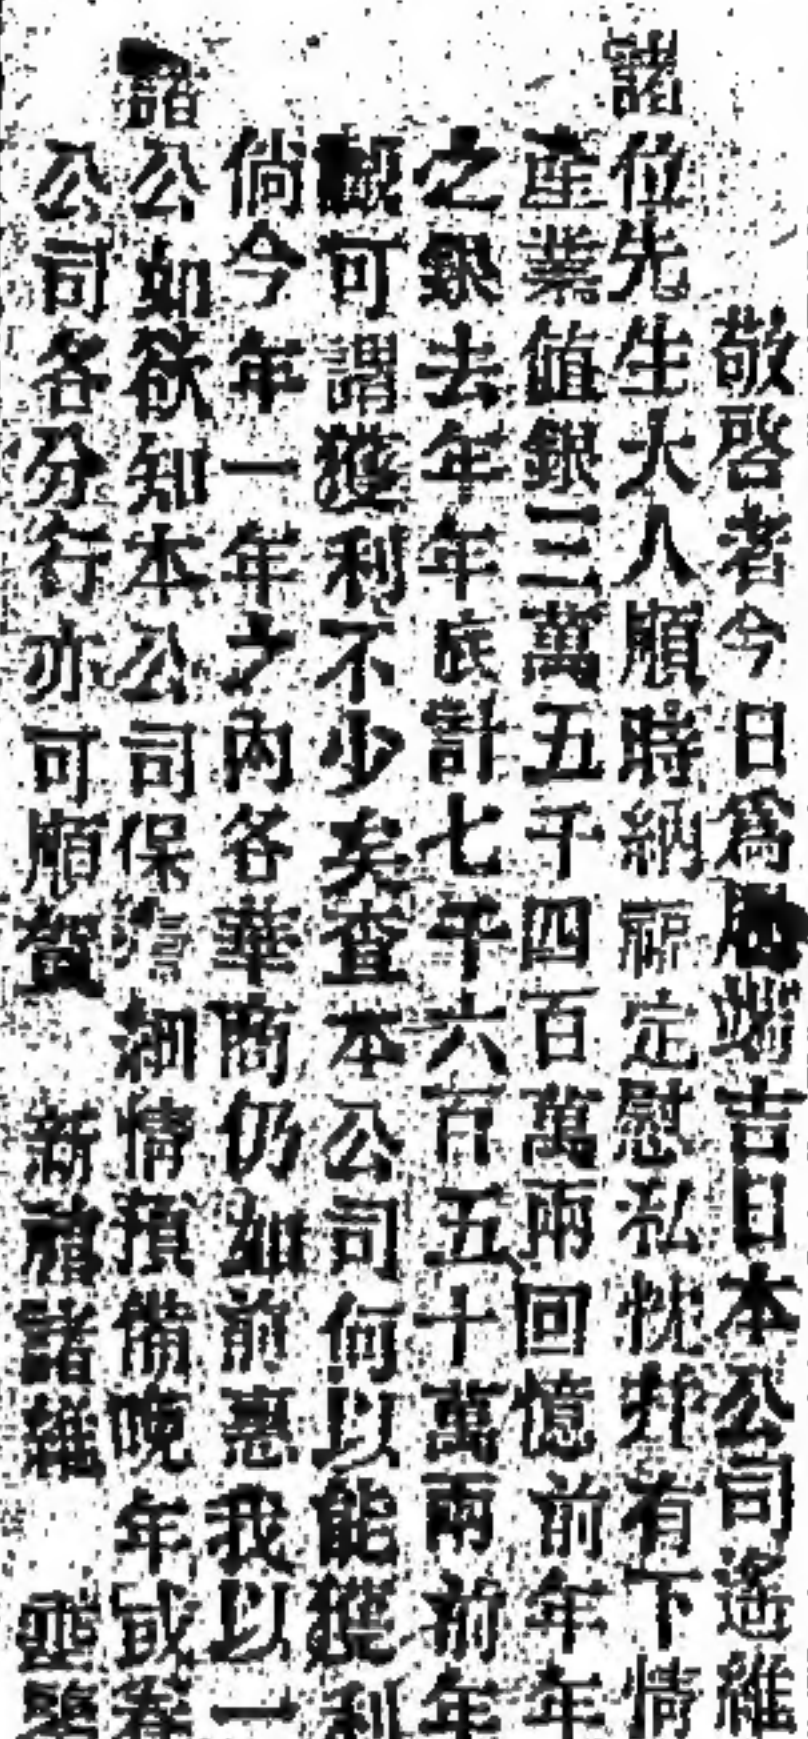 敬啓者今日爲履端吉日本公司遙維
諸位先生大人順時納祜定慰私忱茲有下情
產業值銀三萬五千四百萬兩回憶前年年
之銀去年年底計七千六百五十萬兩前年
觀可謂獲利不少矣查本公司何以能獲利
倘今年一年之內各華商仍如前惠我以一
諸公如欲知本公司保細情預備晚年或
公司各分行亦可順賀 新禧諸維 垂鑒